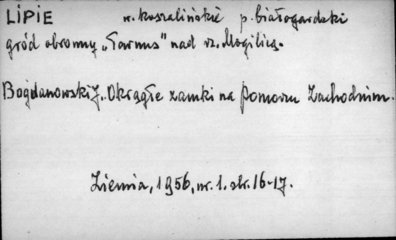 LIPIE w. koszalińskie p. białogardzki
gród obronny „Garnus" nad rz. Mogilicą.
Bogdanowski J. Okrągłe zamki na Pomorzu Zachodnim.
Ziemia, 1956, nr. 1. str. 16-17.